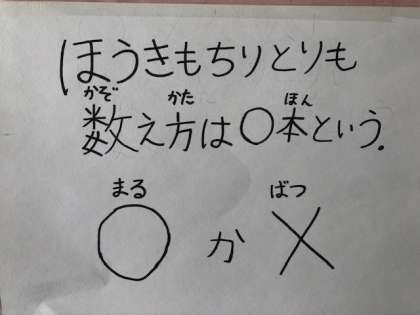 ほうきもちりとりも
かぞ かた ほん
数え方は〇本という.
まる ばつ
〇か×